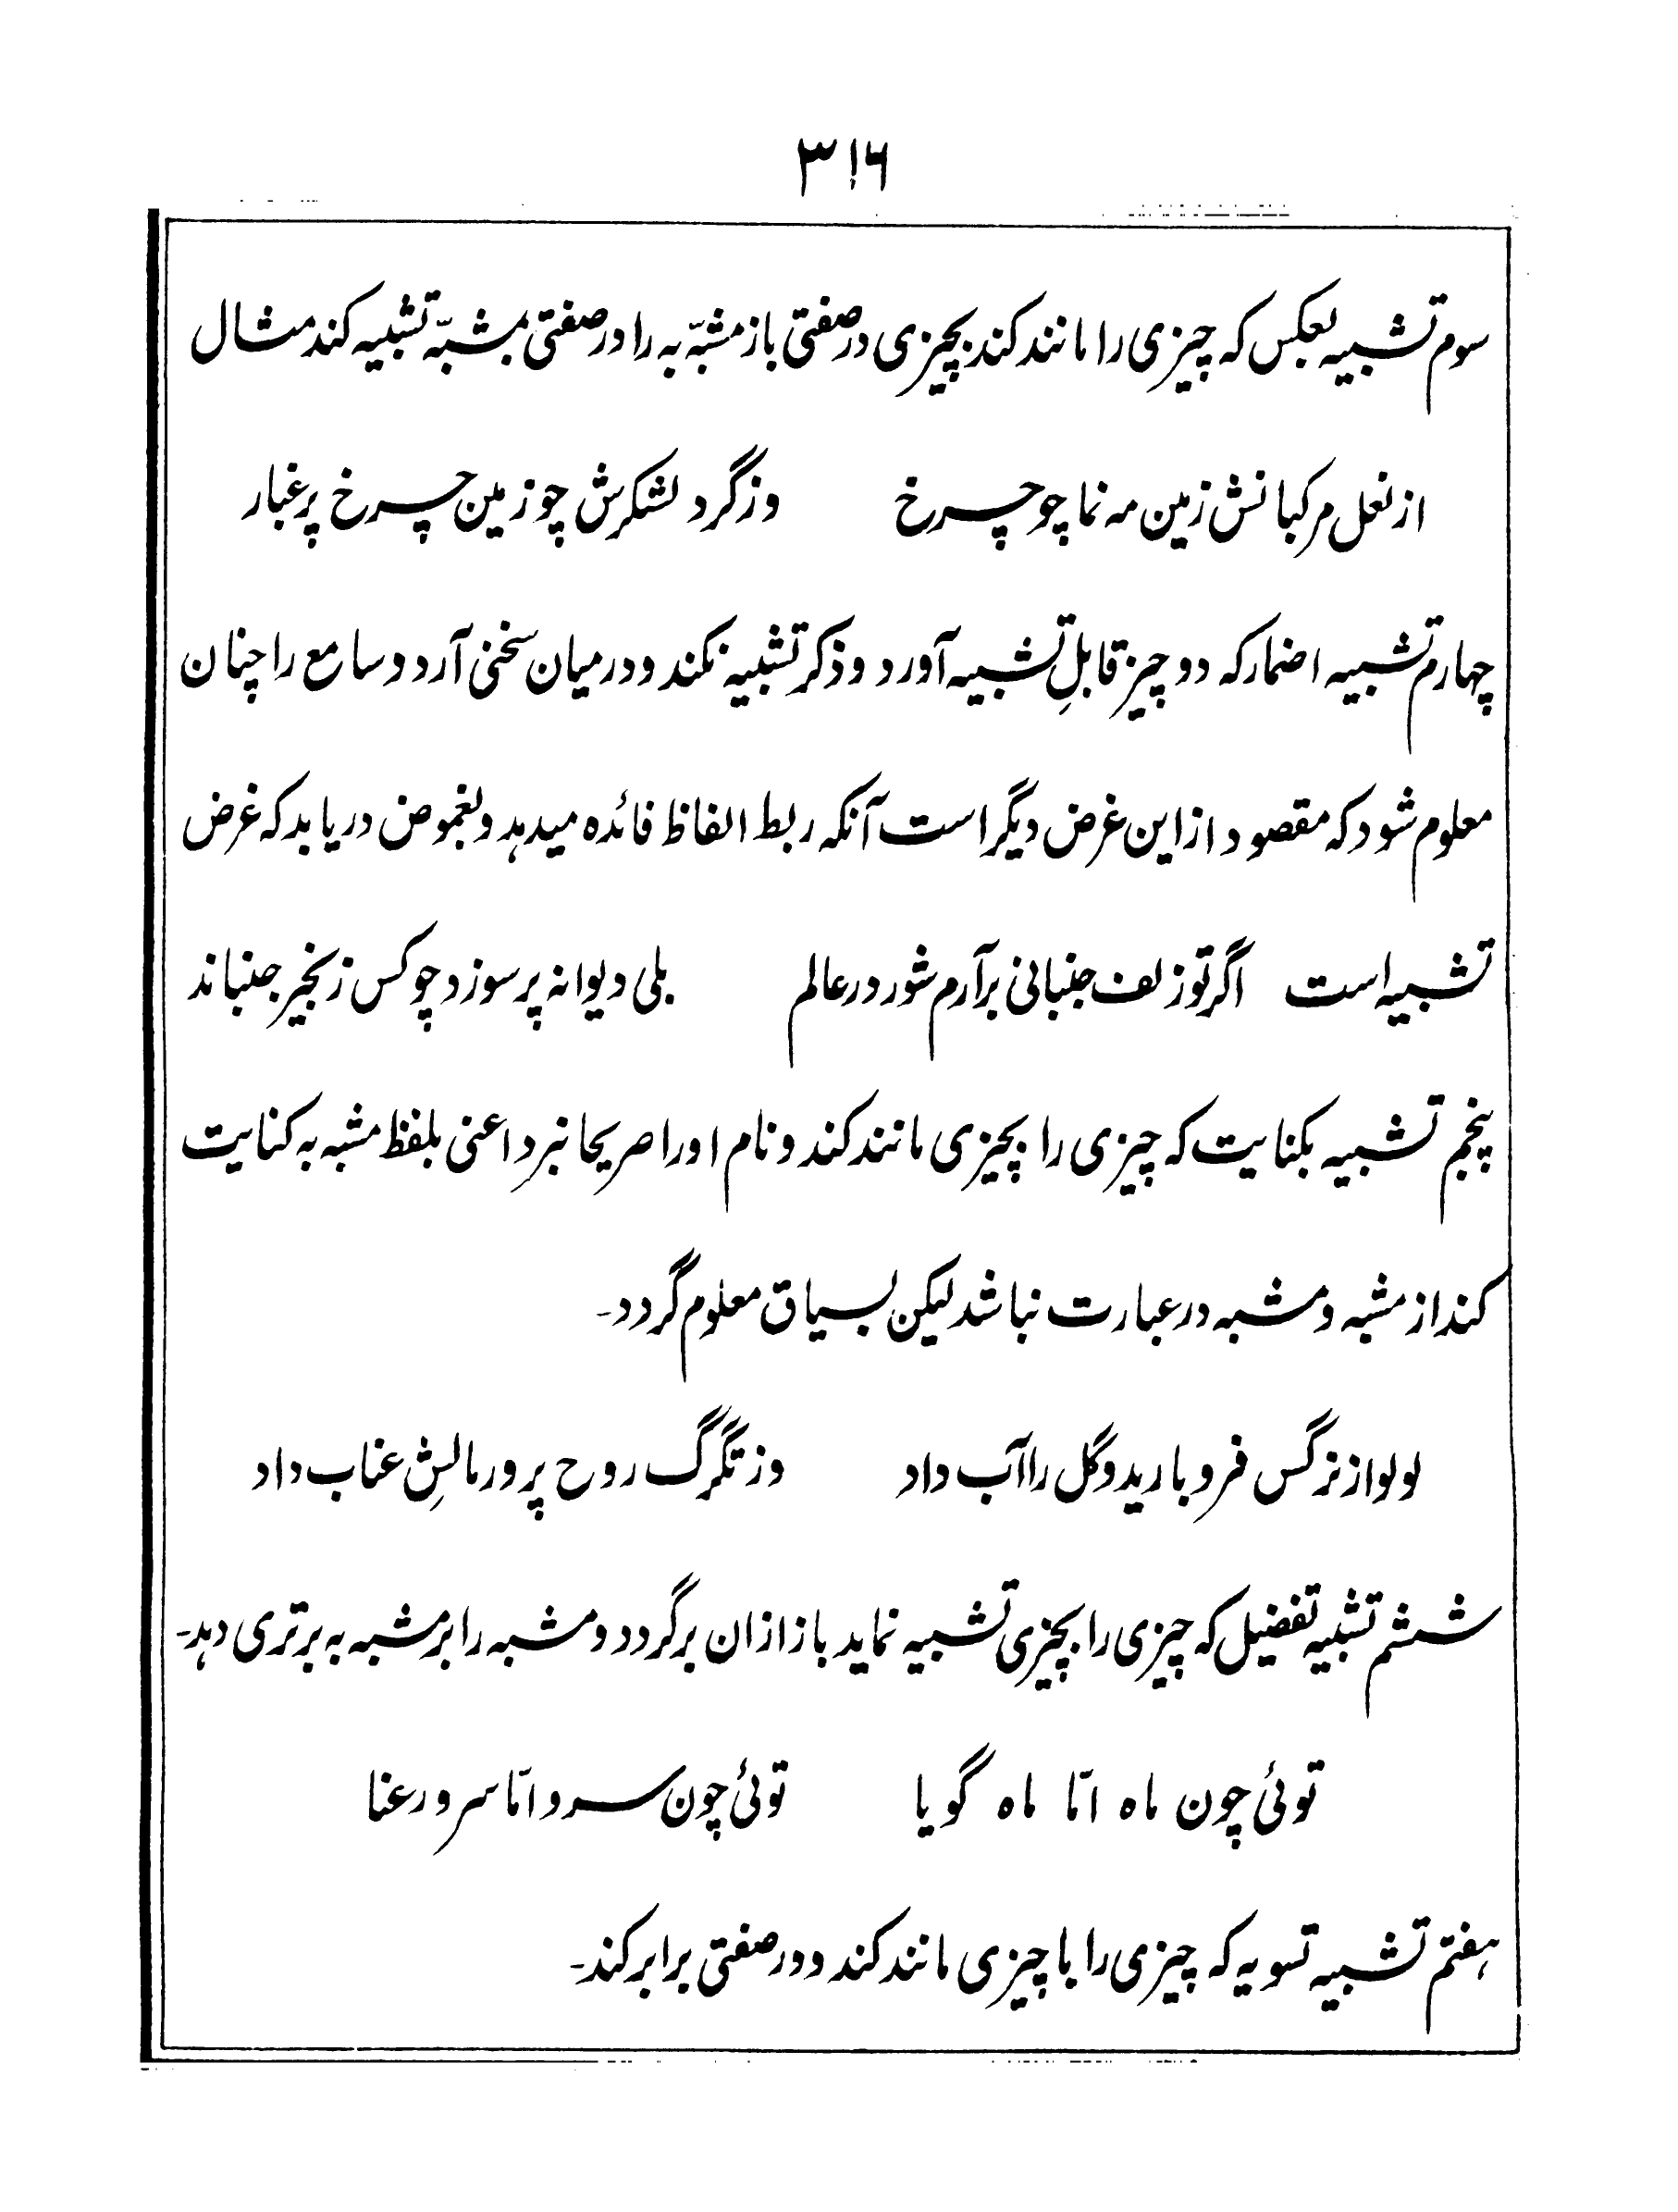 ۳۱۶
سوم تشبیہ بعکس کہ چیزی را مانند کند بچیزی در صفتی باز مشبّہ بہ را در صفتی بمشبّہ تشبیہ کند مثال
از نعل مرکبانش زمین مہ نما چو چرخ وز گرد لشکرش چو زمین چرخ پر غبار
چہارم تشبیہ اضمار کہ دو چیز قابلِ تشبیہ آورد و ذکر تشبیہ نکند و درمیان سخنی آرد و سامع را چنان
معلوم شود کہ مقصود از این غرض دیگر است آنکہ ربط الفاظ فائدہ میدہد و بغموض دریابد کہ غرض
تشبیہ است اگر تو زلف جنبانی برآرم شور در عالم بلی دیوانہ پر سوزد چو کس زنجیر جنباند
پنجم تشبیہ بکنایت کہ چیزی را بچیزی مانند کند و نام او را صریحا نبرد اعنی بلفظ مشبہ بہ کنایت
کند از مشبہ و مشبہ در عبارت نباشد لیکن بسیاق معلوم گردد۔
لولو از نرگس فرو بارید و گل را آب داد وز تگرگ روح پرور مالشِ عناب داد
ششم تشبیہ تفضیل کہ چیزی را بچیزی تشبیہ نماید باز ازان برگردد و مشبہ را بر مشبہ بہ برتری دہد۔
توئی چون ماہ امّا ماہ گویا توئی چون سرو امّا سرو رعنا
ہفتم تشبیہ تسویہ کہ چیزی را با چیزی مانند کند و در صفتی برابر کند۔